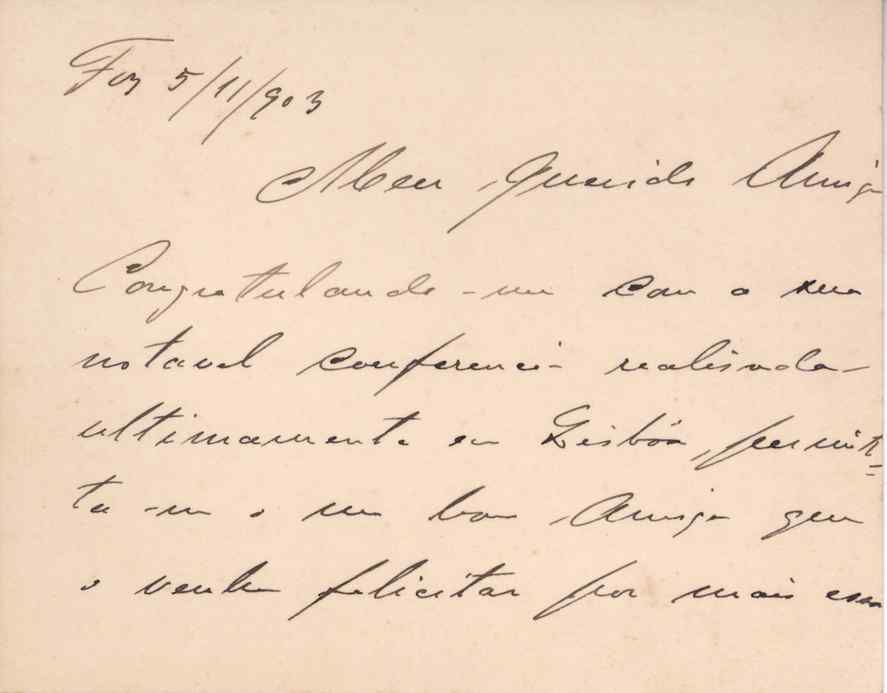 Foz 5/11/903
Meu Querido Amigo
Congratulando-me com a sua
notavel conferencia realisada
ultimamente em Lisbôa, permit-
ta-me o meu bom Amigo que
o venha felicitar por mais essa